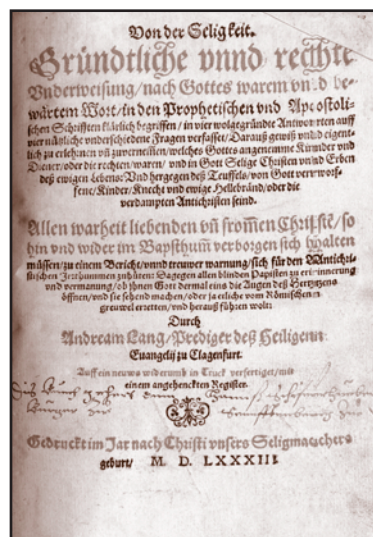 Von der Seligkeit.
Gründtliche vnnd rechte
Vnderweisung/nach Gottes warem vnd be-
wärtem Wort/in den Prophetischen vnd Apostoli-
schen Schrifften klärlich begriffen/in vier wolgegründte Antworten auff
vier nützliche vnderschiedene Fragen verfasset/Darauß gewiß vnd eigent-
lich zu erlehrnen vñ zuvernemen/welches Gottes angeneme Kinder vnd
Diener/oder die rechten/waren/vnd in Gott Selige Christen vnd Erben
deß ewigen Lebens: Vnd hergegen deß Teuffels/von Gott verworf-
fene/Kinder/Knecht vnd ewige Hellebränd/oder die
verdampten Antichristen seind.
Allen warheit liebenden vñ fromen Christẽ/so
hin vnd wider im Bapsthum verborgen sich halten
müssen/zu einem Bericht/vnnd treuwer warnung/sich für den Antichri-
stischen Irrthummen zuhüten: Dagegen allen blinden Papisten zu erinnerung
vnd vermanung/ob ihnen Gott dermal eins die Augen deß Hertzens
öffnen/vnd sie sehend machen/oder ja etliche vom Römischen
greuwel erretten/vnd herauß führen wolt:
Durch
Andream Lang/Prediger deß Heiligen
Euangelij zu Clagenfurt.
Auff ein neuws widerumb in Truck verfertiget/mit
einem angehenckten Register.
Gedruckt im Jar nach Christi vnsers Seligmachers
geburt/ M. D. LXXXIII